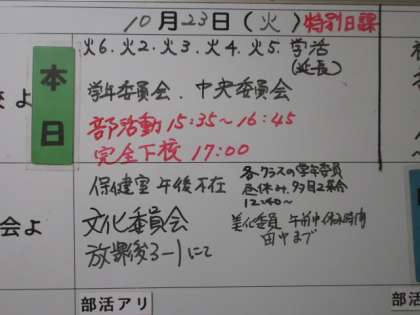 10月23日(火)特別日課
本日
火6.火2.火3.火4.火5.学活
(延長)
学年委員会.中央委員会
部活動15:35~16:45
完全下校 17:00
保健室午後不在
各クラスの学年委員
昼休み
12:40~
文化委員会
放課後3-1にて
美化委員 午前中休み時間
田中まで
会よ
よ
部活アリ
部活